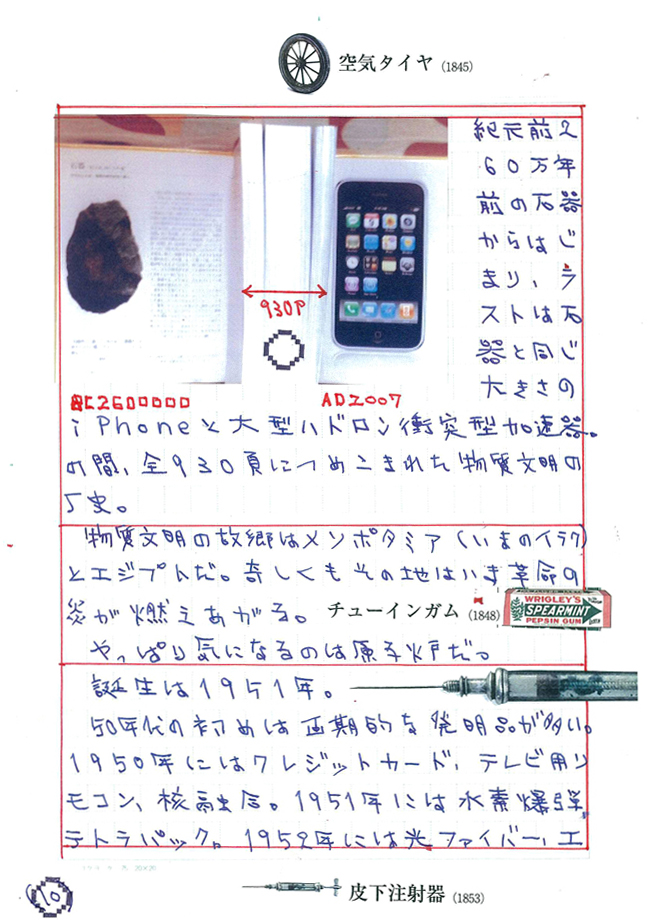 空気タイヤ (1845)
紀元前2
60万年
前の石器
からはじ
まり、ラ
ストは石
器と同じ
大きさの
930P
BC2600000
AD2007
iPhoneと大型ハドロン衝突型加速器。
の間、全930頁につめこまれた物質文明の
歴史。
物質文明の故郷はメソポタミア(いまのイラク)
とエジプトだ。奇しくもその地はいま革命の
炎が燃えあがる。
チューインガム (1848)
WRIGLEY'S
SPEARMINT
PEPSIN GUM
やっぱり気になるのは原子炉だ。
誕生は1951年。
50年代の初めは画期的な発明品が多い。
1950年にはクレジットカード、テレビ用リ
モコン、核融合。1951年には水素爆弾、
テトラパック。1952年には光ファイバー、エ
10
皮下注射器 (1853)